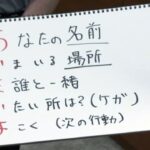 なたの名前
ま いる 場所
誰と一緒
たい所は?(ケガ)
こく (次の行動)